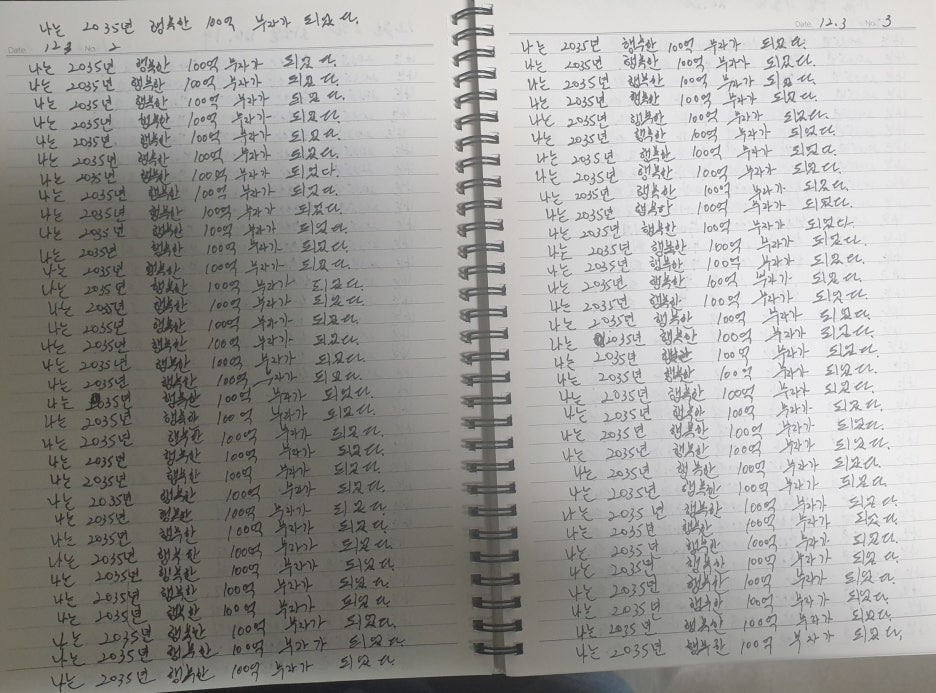 나는 2035년 행복한 100억 부자가 되었다.
Date 12.3 No. 2
나는 2035년 행복한 100억 부자가 되었다.
나는 2035년 행복한 100억 부자가 되었다.
나는 2035년 행복한 100억 부자가 되었다.
나는 2035년 행복한 100억 부자가 되었다.
나는 2035년 행복한 100억 부자가 되었다.
나는 2035년 행복한 100억 부자가 되었다.
나는 2035년 행복한 100억 부자가 되었다.
나는 2035년 행복한 100억 부자가 되었다.
나는 2035년 행복한 100억 부자가 되었다.
나는 2035년 행복한 100억 부자가 되었다.
나는 2035년 행복한 100억 부자가 되었다.
나는 2035년 행복한 100억 부자가 되었다.
나는 2035년 행복한 100억 부자가 되었다.
나는 2035년 행복한 100억 부자가 되었다.
나는 2035년 행복한 100억 부자가 되었다.
나는 2035년 행복한 100억 부자가 되었다.
나는 2035년 행복한 100억 부자가 되었다.
나는 2035년 행복한 100억 부자가 되었다.
나는 2035년 행복한 100억 부자가 되었다.
나는 2035년 행복한 100억 부자가 되었다.
나는 2035년 행복한 100억 부자가 되었다.
나는 2035년 행복한 100억 부자가 되었다.
나는 2035년 행복한 100억 부자가 되었다.
나는 2035년 행복한 100억 부자가 되었다.
나는 2035년 행복한 100억 부자가 되었다.
나는 2035년 행복한 100억 부자가 되었다.
나는 2035년 행복한 100억 부자가 되었다.
나는 2035년 행복한 100억 부자가 되었다.
나는 2035년 행복한 100억 부자가 되었다.
나는 2035년 행복한 100억 부자가 되었다.
나는 2035년 행복한 100억 부자가 되었다.
나는 2035년 행복한 100억 부자가 되었다.
나는 2035년 행복한 100억 부자가 되었다.
Date 12.3 No. 3
나는 2035년 행복한 100억 부자가 되었다.
나는 2035년 행복한 100억 부자가 되었다.
나는 2035년 행복한 100억 부자가 되었다.
나는 2035년 행복한 100억 부자가 되었다.
나는 2035년 행복한 100억 부자가 되었다.
나는 2035년 행복한 100억 부자가 되었다.
나는 2035년 행복한 100억 부자가 되었다.
나는 2035년 행복한 100억 부자가 되었다.
나는 2035년 행복한 100억 부자가 되었다.
나는 2035년 행복한 100억 부자가 되었다.
나는 2035년 행복한 100억 부자가 되었다.
나는 2035년 행복한 100억 부자가 되었다.
나는 2035년 행복한 100억 부자가 되었다.
나는 2035년 행복한 100억 부자가 되었다.
나는 2035년 행복한 100억 부자가 되었다.
나는 2035년 행복한 100억 부자가 되었다.
나는 2035년 행복한 100억 부자가 되었다.
나는 2035년 행복한 100억 부자가 되었다.
나는 2035년 행복한 100억 부자가 되었다.
나는 2035년 행복한 100억 부자가 되었다.
나는 2035년 행복한 100억 부자가 되었다.
나는 2035년 행복한 100억 부자가 되었다.
나는 2035년 행복한 100억 부자가 되었다.
나는 2035년 행복한 100억 부자가 되었다.
나는 2035년 행복한 100억 부자가 되었다.
나는 2035년 행복한 100억 부자가 되었다.
나는 2035년 행복한 100억 부자가 되었다.
나는 2035년 행복한 100억 부자가 되었다.
나는 2035년 행복한 100억 부자가 되었다.
나는 2035년 행복한 100억 부자가 되었다.
나는 2035년 행복한 100억 부자가 되었다.
나는 2035년 행복한 100억 부자가 되었다.
나는 2035년 행복한 100억 부자가 되었다.